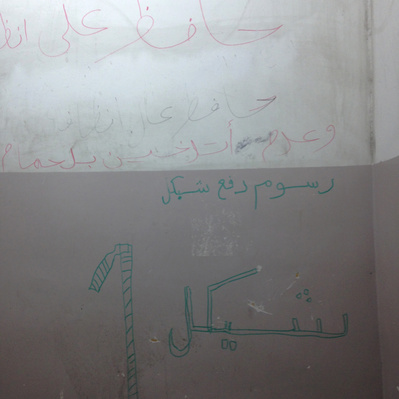 حافظ على انظ
حافظ على
وعدم التدخين بلحمام
رسوم دفع شيكل
1 شيكل